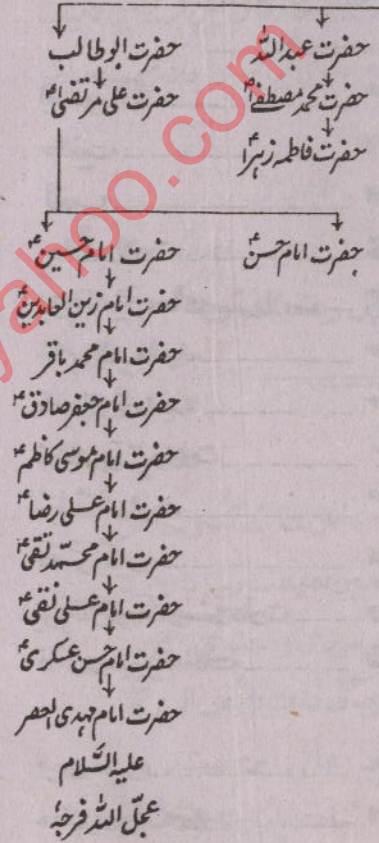 حضرت عبداللہ
حضرت ابوطالب
حضرت محمد مصطفےٰ ؐ
حضرت علی مرتضیٰ ؑ
حضرت فاطمہ زہرا ؑ
حضرت امام حسن ؑ
حضرت امام حسین ؑ
حضرت امام زین العابدین ؑ
حضرت امام محمد باقر
حضرت امام جعفر صادق ؑ
حضرت امام موسیٰ کاظم ؑ
حضرت امام علی رضا ؑ
حضرت امام محمّد تقی ؑ
حضرت امام علی نقی ؑ
حضرت امام حسن عسکری ؑ
حضرت امام مہدی العصر
علیہ السَّلام
عجّل اللہ فرجہٗ
yahoo.com